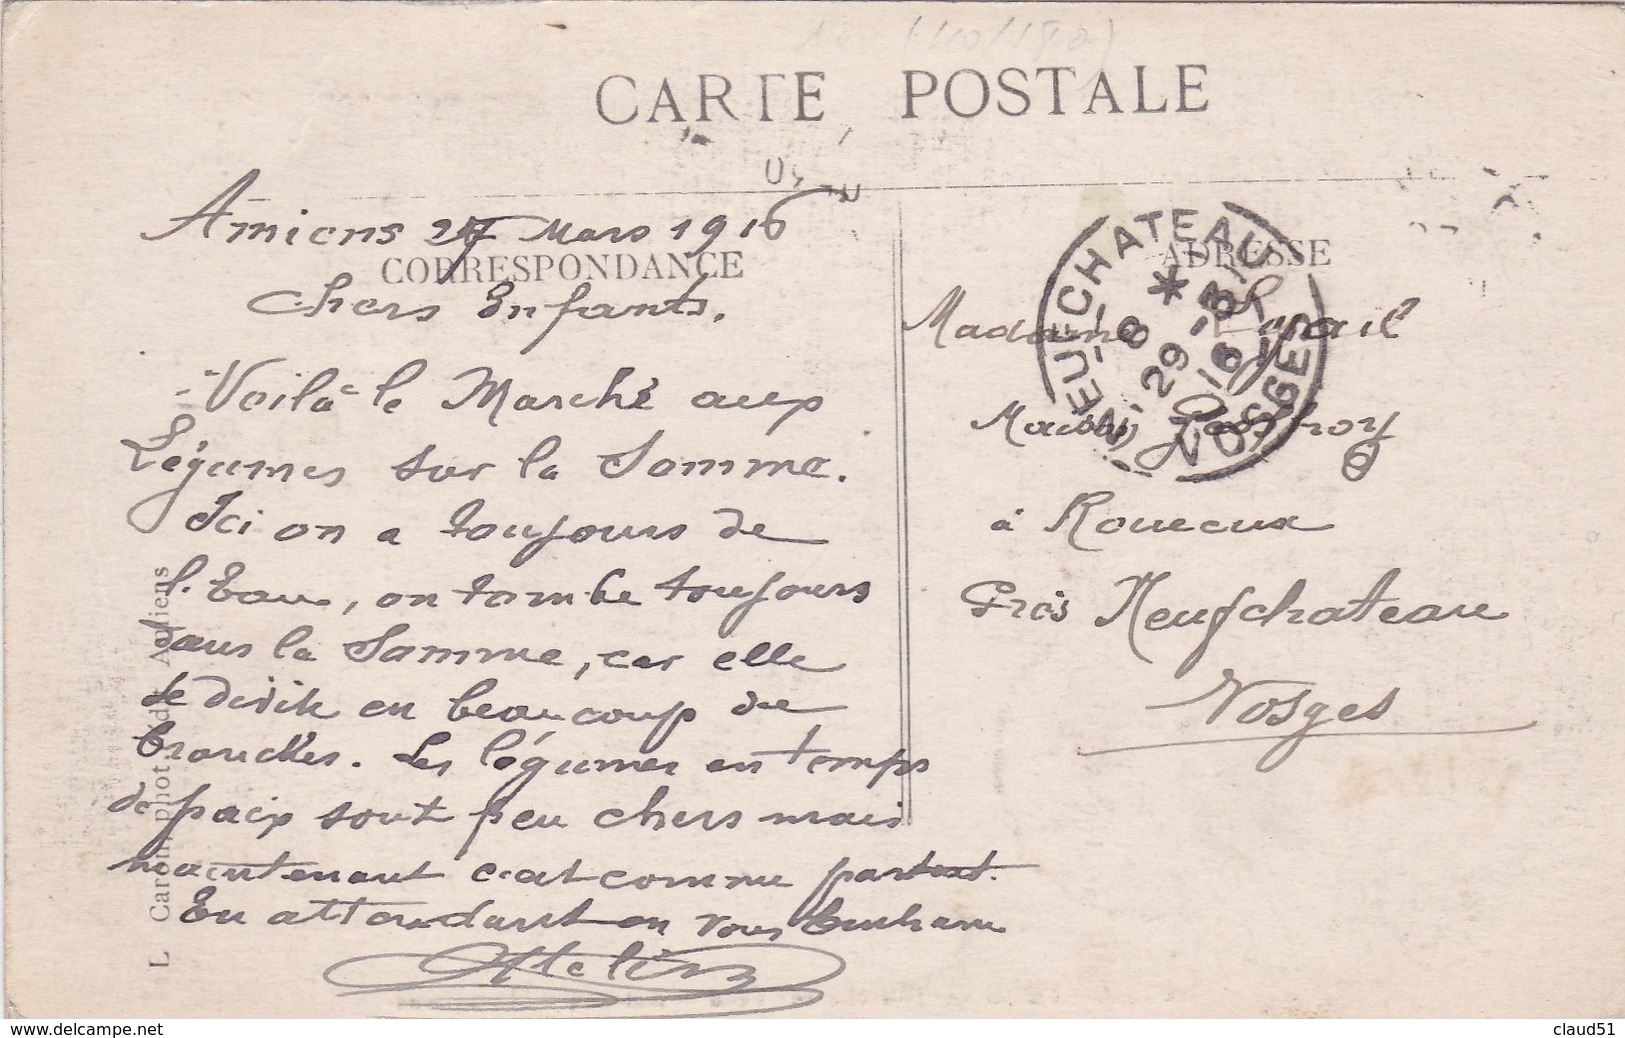 CARTE POSTALE
CORRESPONDANCE
ADRESSE
Amiens 27 Mars 1916
Chers Enfants.
Voilà le Marché aux
Légumes sur la Somme.
Ici on a toujours de
l'Eau, on tombe toujours
dans la Somme, car elle
se divise en beaucoup de
branches. Les légumes en temps
de paix sont peu chers mais
maintenant c'est comme partout.
En attendant on vous embrasse
Madame
à Rouceux
Près Neufchateau
Vosges
NEUFCHATEAU
VOSGES
8 *
29 - 3
16
L. Caron, phot. édit. Amiens
www.delcampe.net
claud51